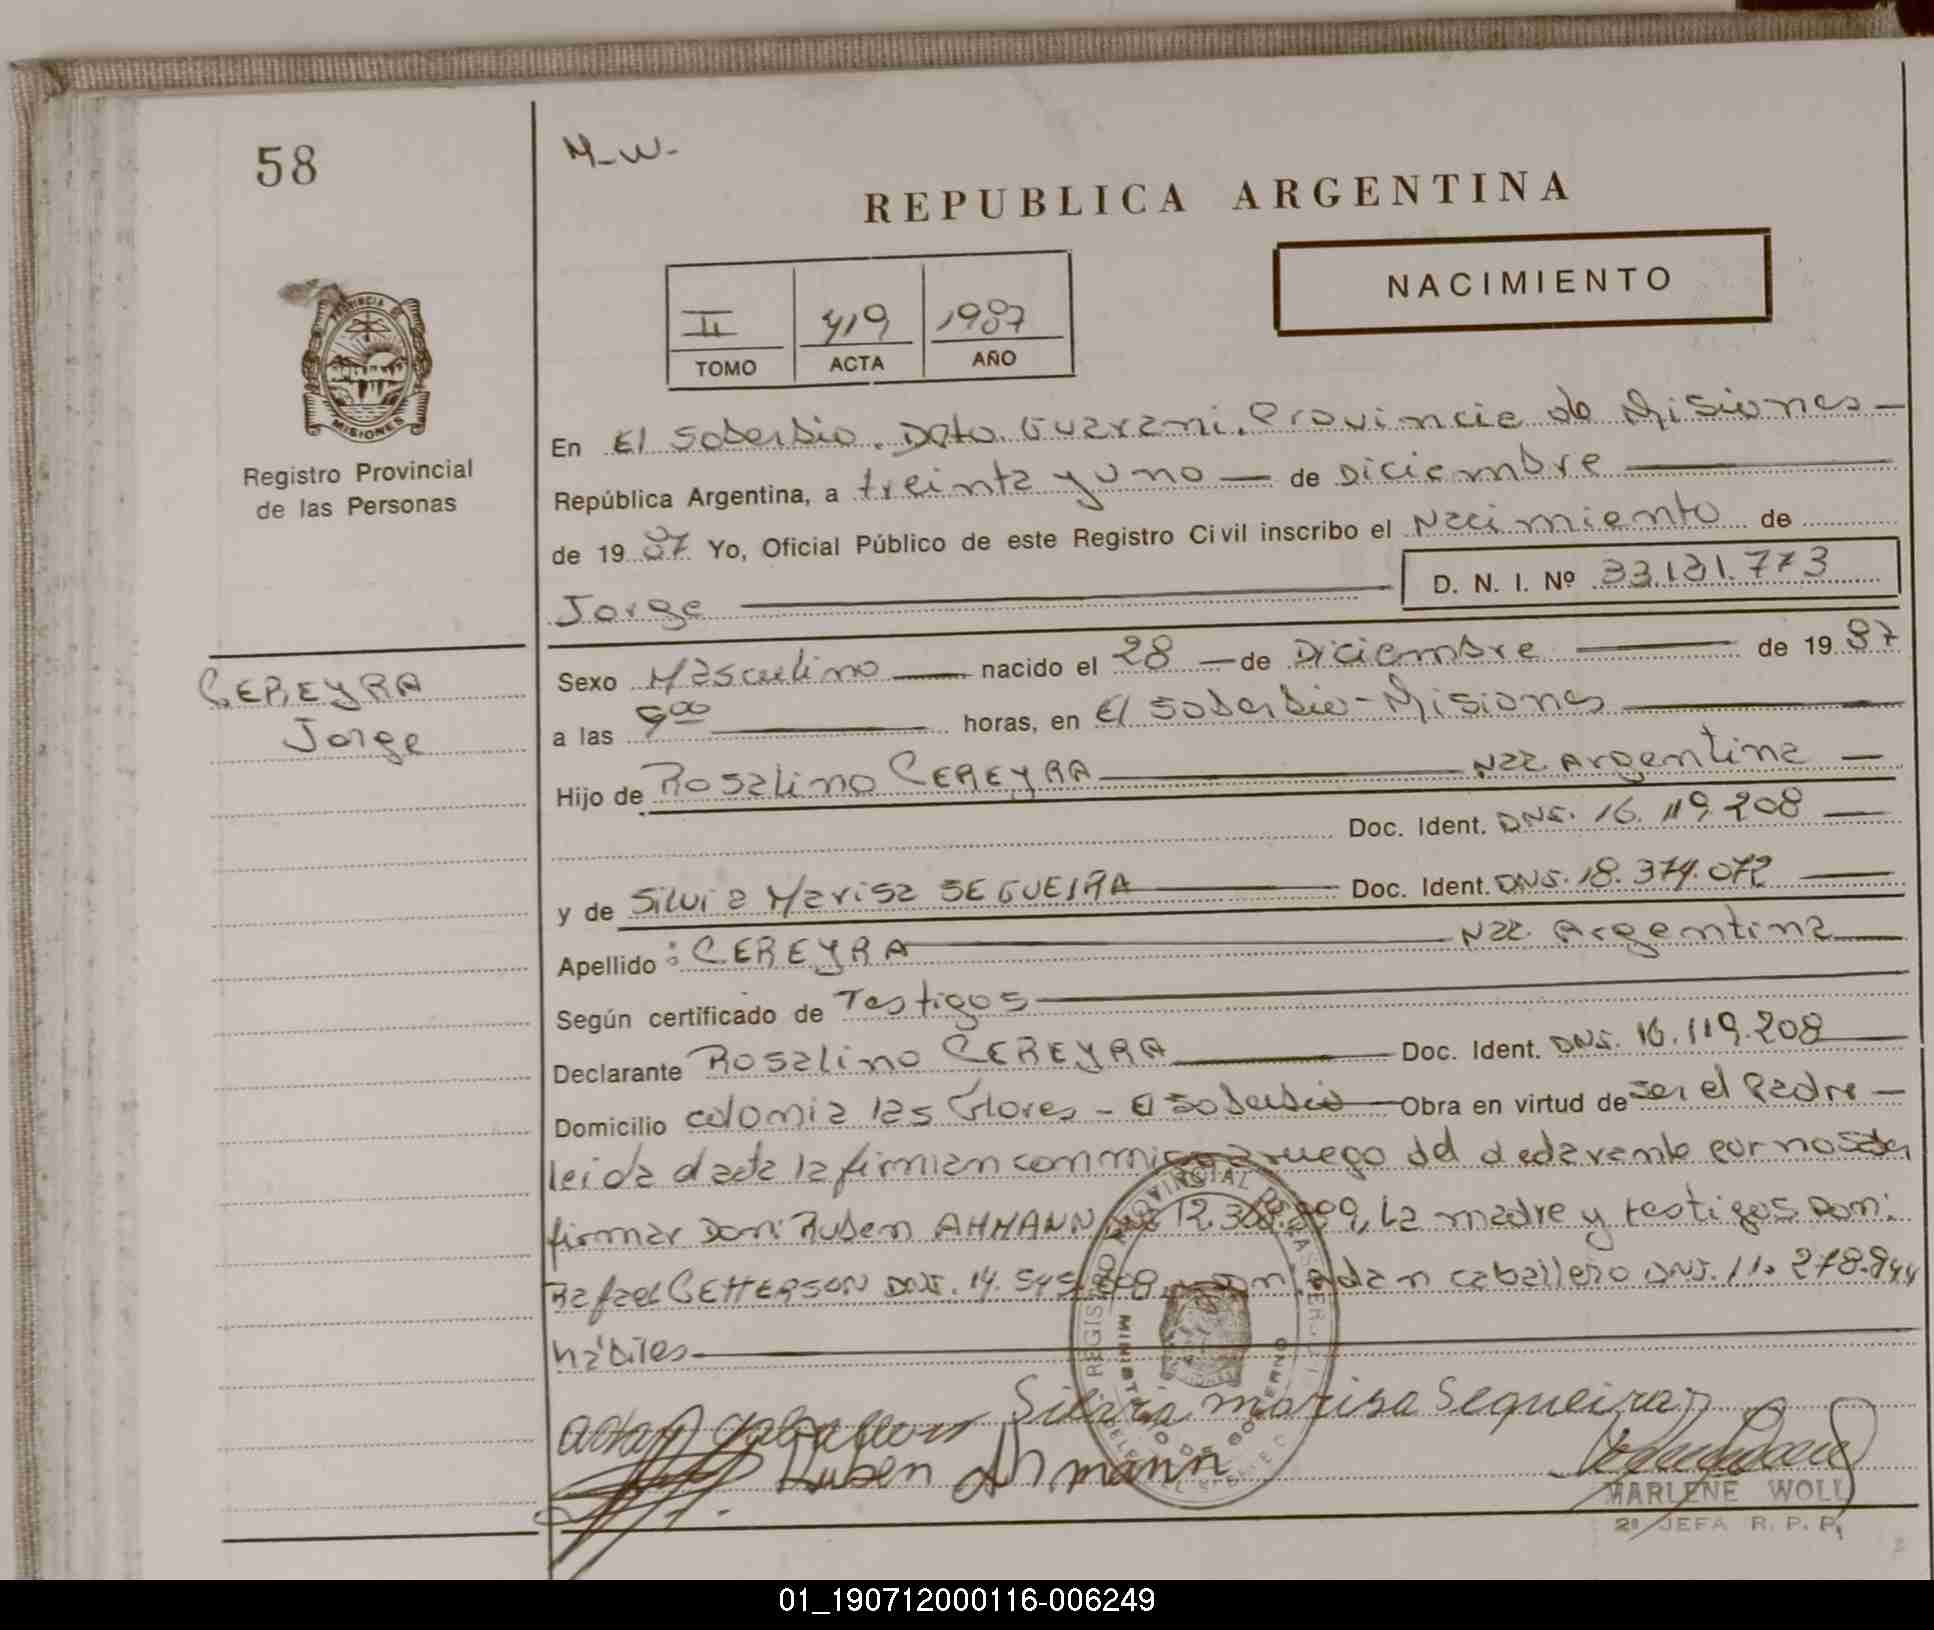 58
M-W-
REPUBLICA ARGENTINA
NACIMIENTO
II 419 1987
TOMO ACTA AÑO
PROVINCIA DE
MISIONES
Registro Provincial
de las Personas
CEREYRA
Jorge
En El Soberbio. Dpto. Guarani. Provincia de Misiones -
República Argentina, a treinta y uno — de Diciembre
de 19 87. Yo, Oficial Público de este Registro Civil inscribo el Nacimiento de
Jorge D. N. I. Nº 33.131.773
Sexo Masculino — nacido el 28 — de Diciembre — de 19 87
a las 9 00 — horas, en El Soberbio - Misiones
Hijo de Rosalino CEREYRA — Nac. Argentina —
Doc. Ident. DNI. 16.119.208 —
y de Silvia Marisa SEGUEIRA — Doc. Ident. DNI. 18.374.072 —
Apellido : CEREYRA — Nac. Argentina
Según certificado de Testigos
Declarante Rosalino CEREYRA — Doc. Ident. DNI. 16.119.208
Domicilio colonia las Flores - El Soberbio — Obra en virtud de ser el Padre -
leida el acta la firman conmigo a ruego del declarante por no saber
firmar Don: Ruben AHMANN DNI 12. La madre y testigos Don:
Rafael DNI. 14. Adan caballero DNI. 11.278.844
hábiles
Silvia marisa Sequeira
Ruben Ahmann
REGISTRO PROVINCIAL DE LAS PERSONAS
MINISTERIO DE GOBIERNO
MARLENE WOLL
2ª JEFA R. P. P.
01_190712000116-006249